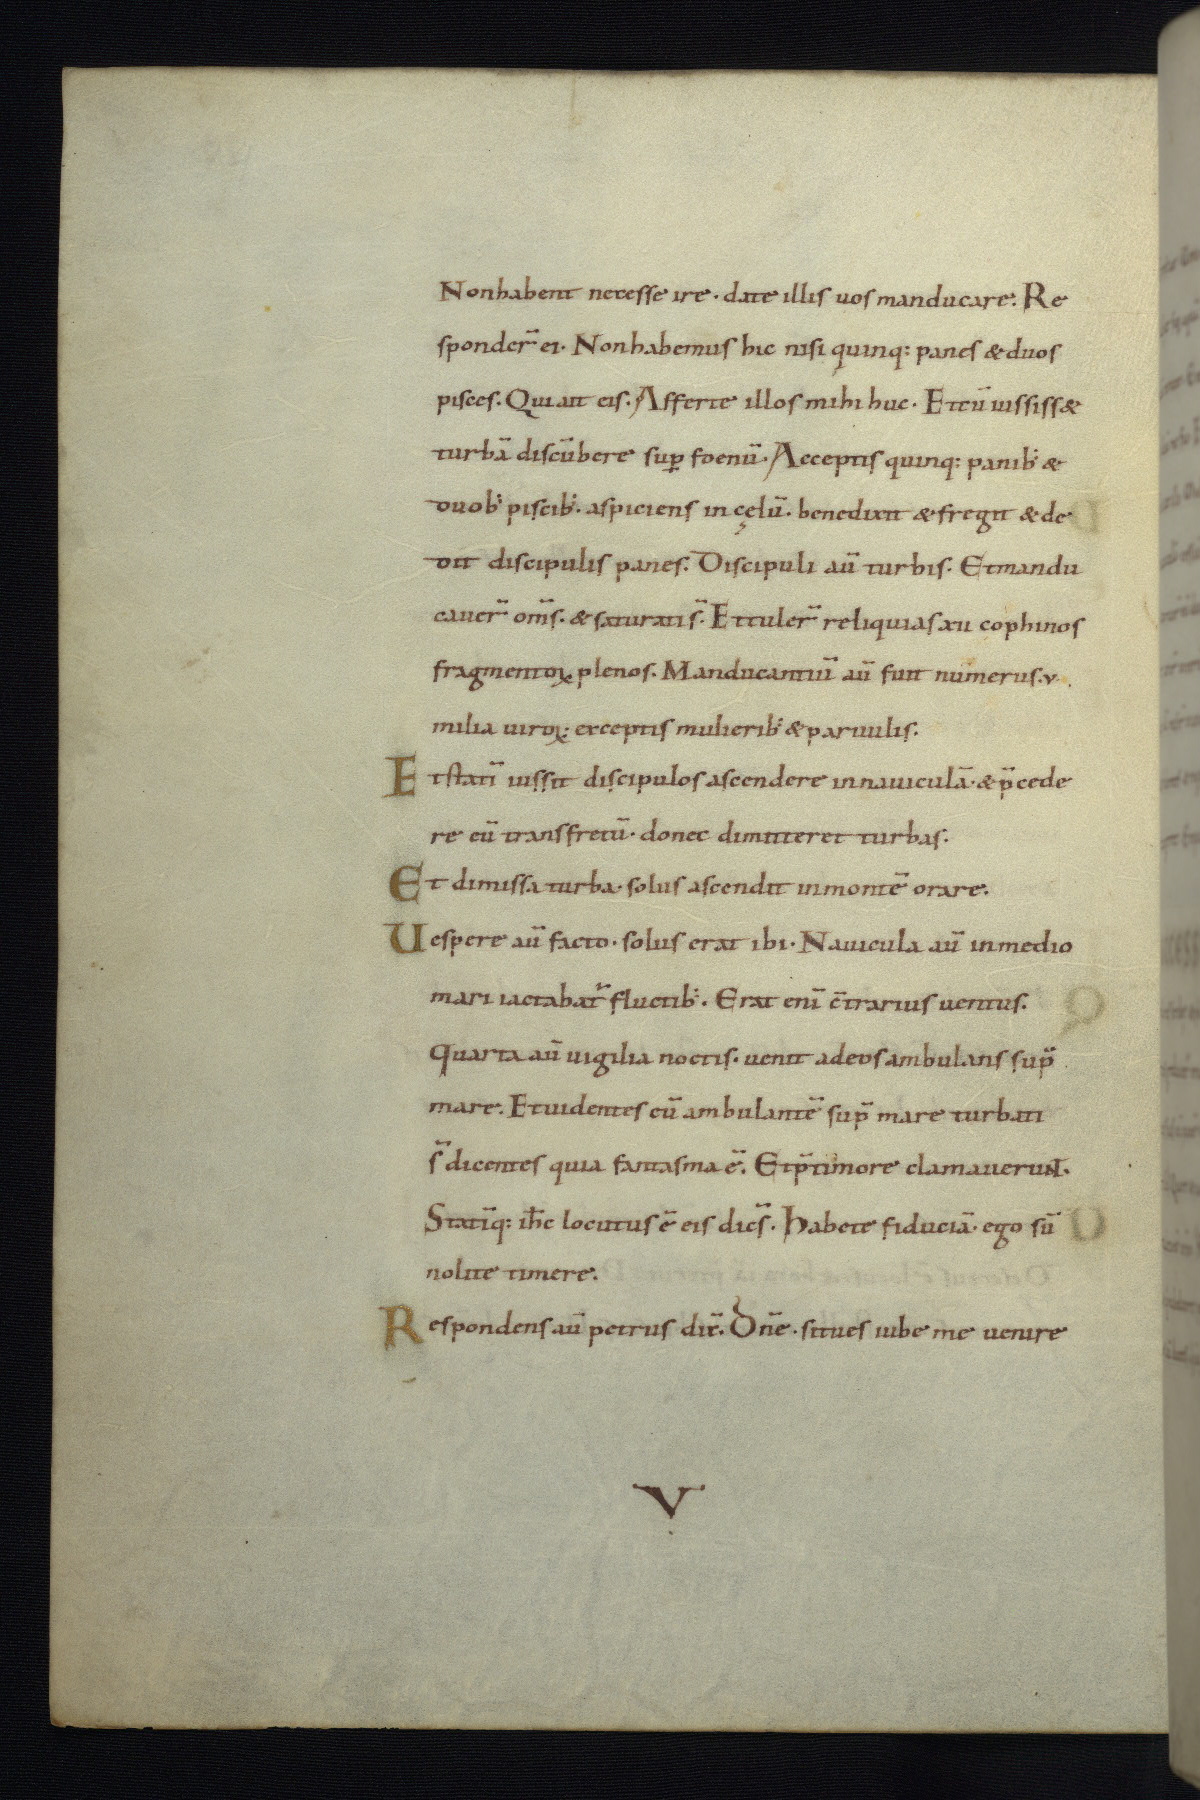 Non habent necesse ire · date illis uos manducare. Re
sponder̄ ei · Non habemus hic nisi quinq: panes & duos
pisces. Qui ait eis. Afferte illos mihi huc · Et cū iussiss&
turbā discūbere sup foenū · Acceptis quinq: panib: &
duob: piscib: · aspiciens in cęlū · benedixit & fregit & de
dit discipulis panes. Discipuli aū turbis · Et mandu
cauer̄ om̄s · & saturati s̄ · Et tuler̄ reliquias xii cophinos
fragmentoꝝ plenos. Manducantiū aū fuit numerus · v ·
milia uiroꝝ: exceptis mulierib: & paruulis.
Et statī iussit discipulos ascendere in nauiculā · & p̄cede
re eū trans fretū · donec dimitteret turbas.
Et dimissa turba · solus ascendit in montē orare.
Uespere aū facto · solus erat ibi · Nauicula aū in medio
mari iactabat̄ fluctib: · Erat enī c̄trarius uentus.
Quarta aū uigilia noctis · uenit ad eos ambulans sup̄
mare. Et uidentes eū ambulantē sup̄ mare turbati
s̄ dicentes quia fantasma ē. Et p̄ timore clamauerunt.
Statīq: ih̄c locutus ē eis dic̄s · Habete fiduciā · ego sū
nolite timere.
Respondens aū petrus dix̄. Dn̄e · si tu es iube me uenire
V